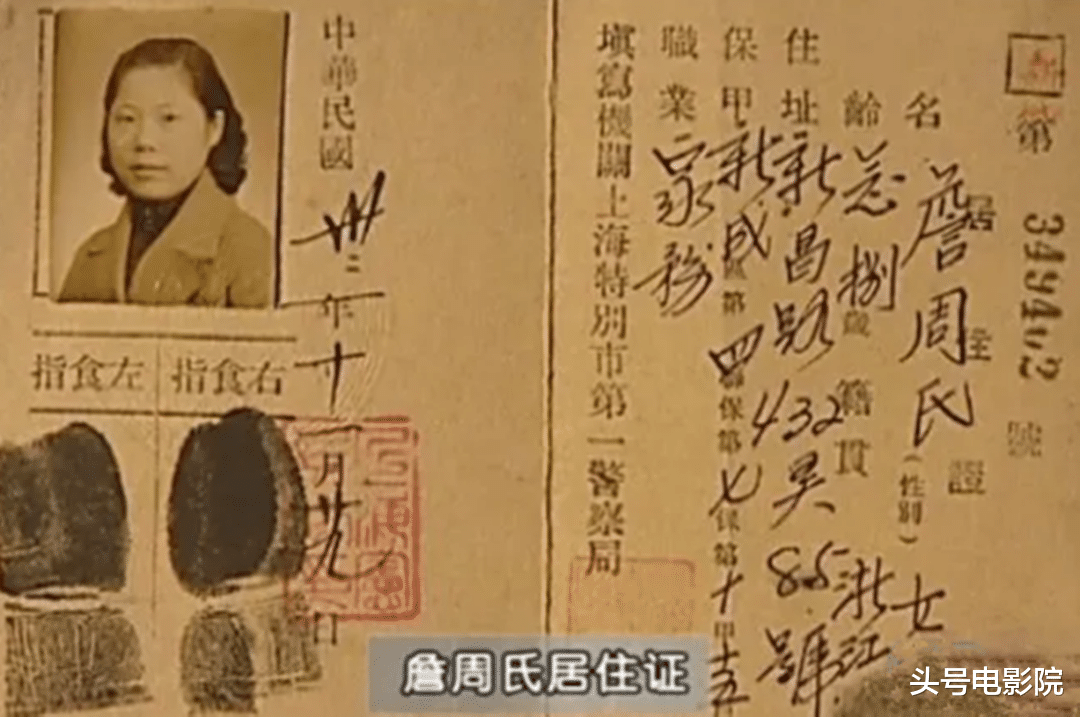 第 349402 號
居住證
名 詹周氏（性別）女
齡 念捌歲 籍貫 浙江
住址 新昌路432弄85號
保甲 新成區第四聯保第七保第十甲十五
職業 家務
填寫機關上海特別市第一警察局
中華民國卅二年十一月廿九日
指食右
指食左
詹周氏居住证
头号电影院